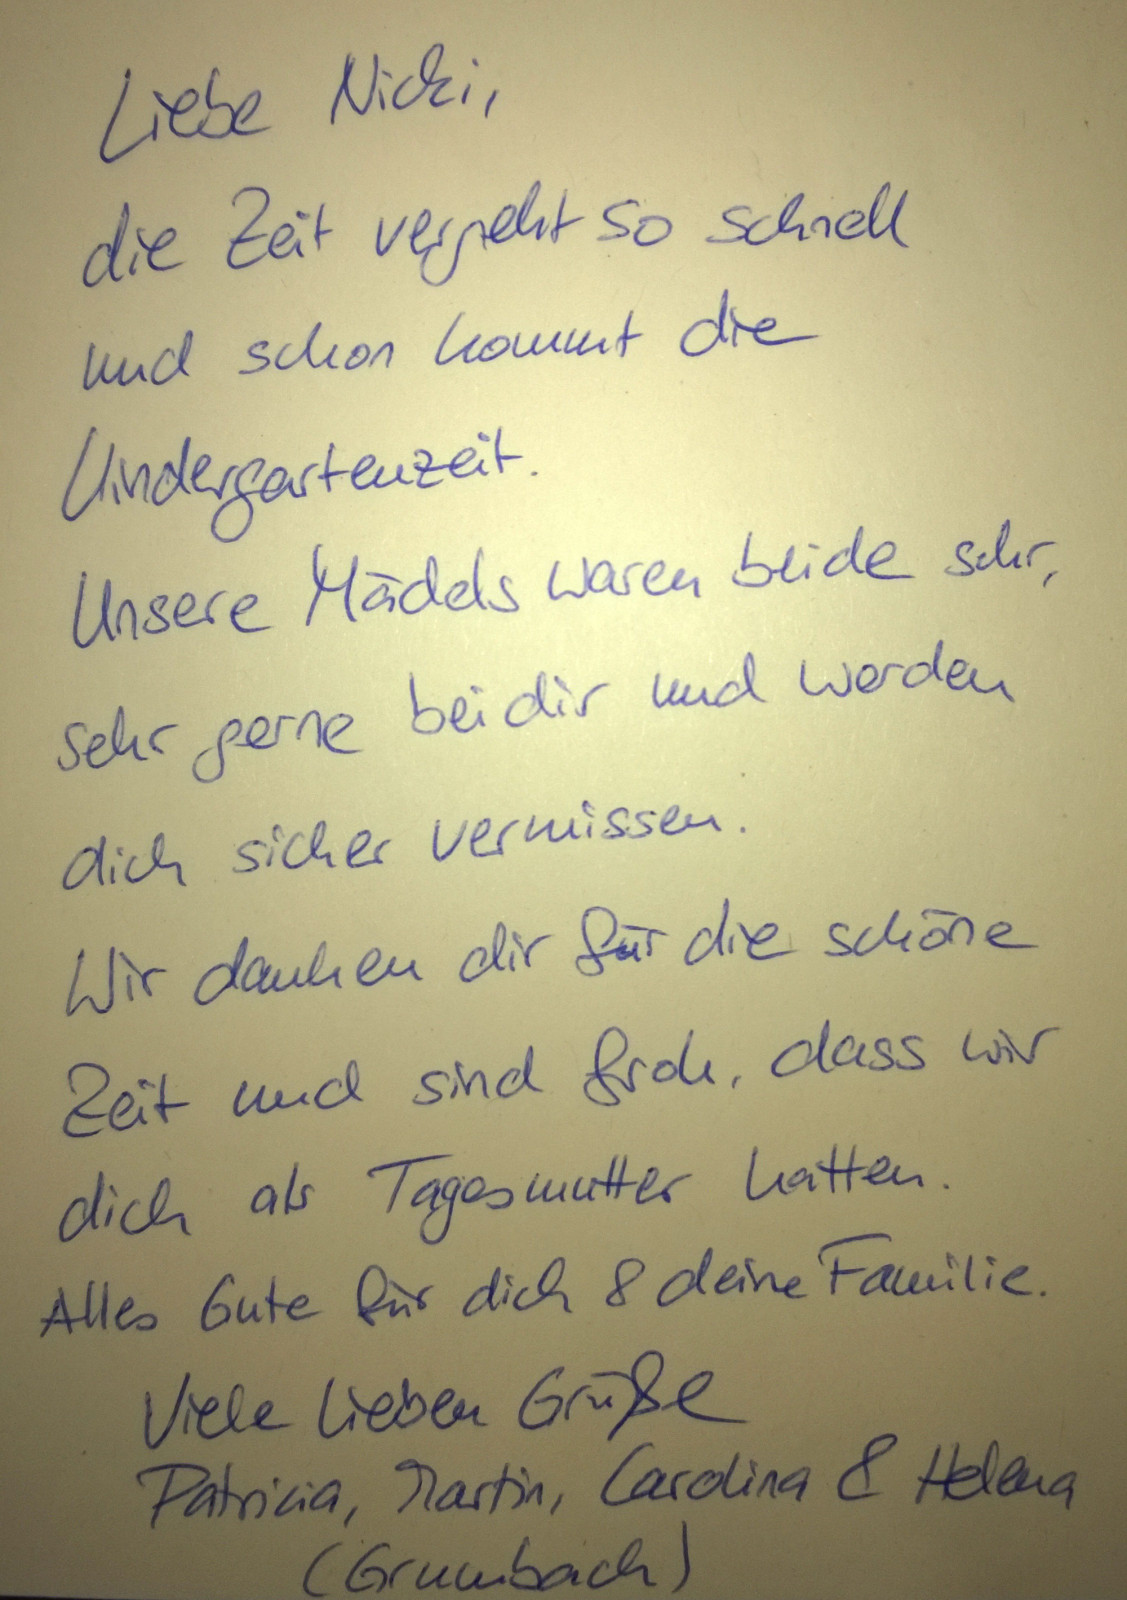 Liebe Nicki,
die Zeit vergeht so schnell
und schon kommt die
Kindergartenzeit.
Unsere Mädels waren beide sehr,
sehr gerne bei dir und werden
dich sicher vermissen.
Wir danken dir für die schöne
Zeit und sind froh, dass wir
dich als Tagesmutter hatten.
Alles Gute für dich & deine Familie.
Viele lieben Grüße
Patricia, Martin, Carolina & Helena
(Grumbach)